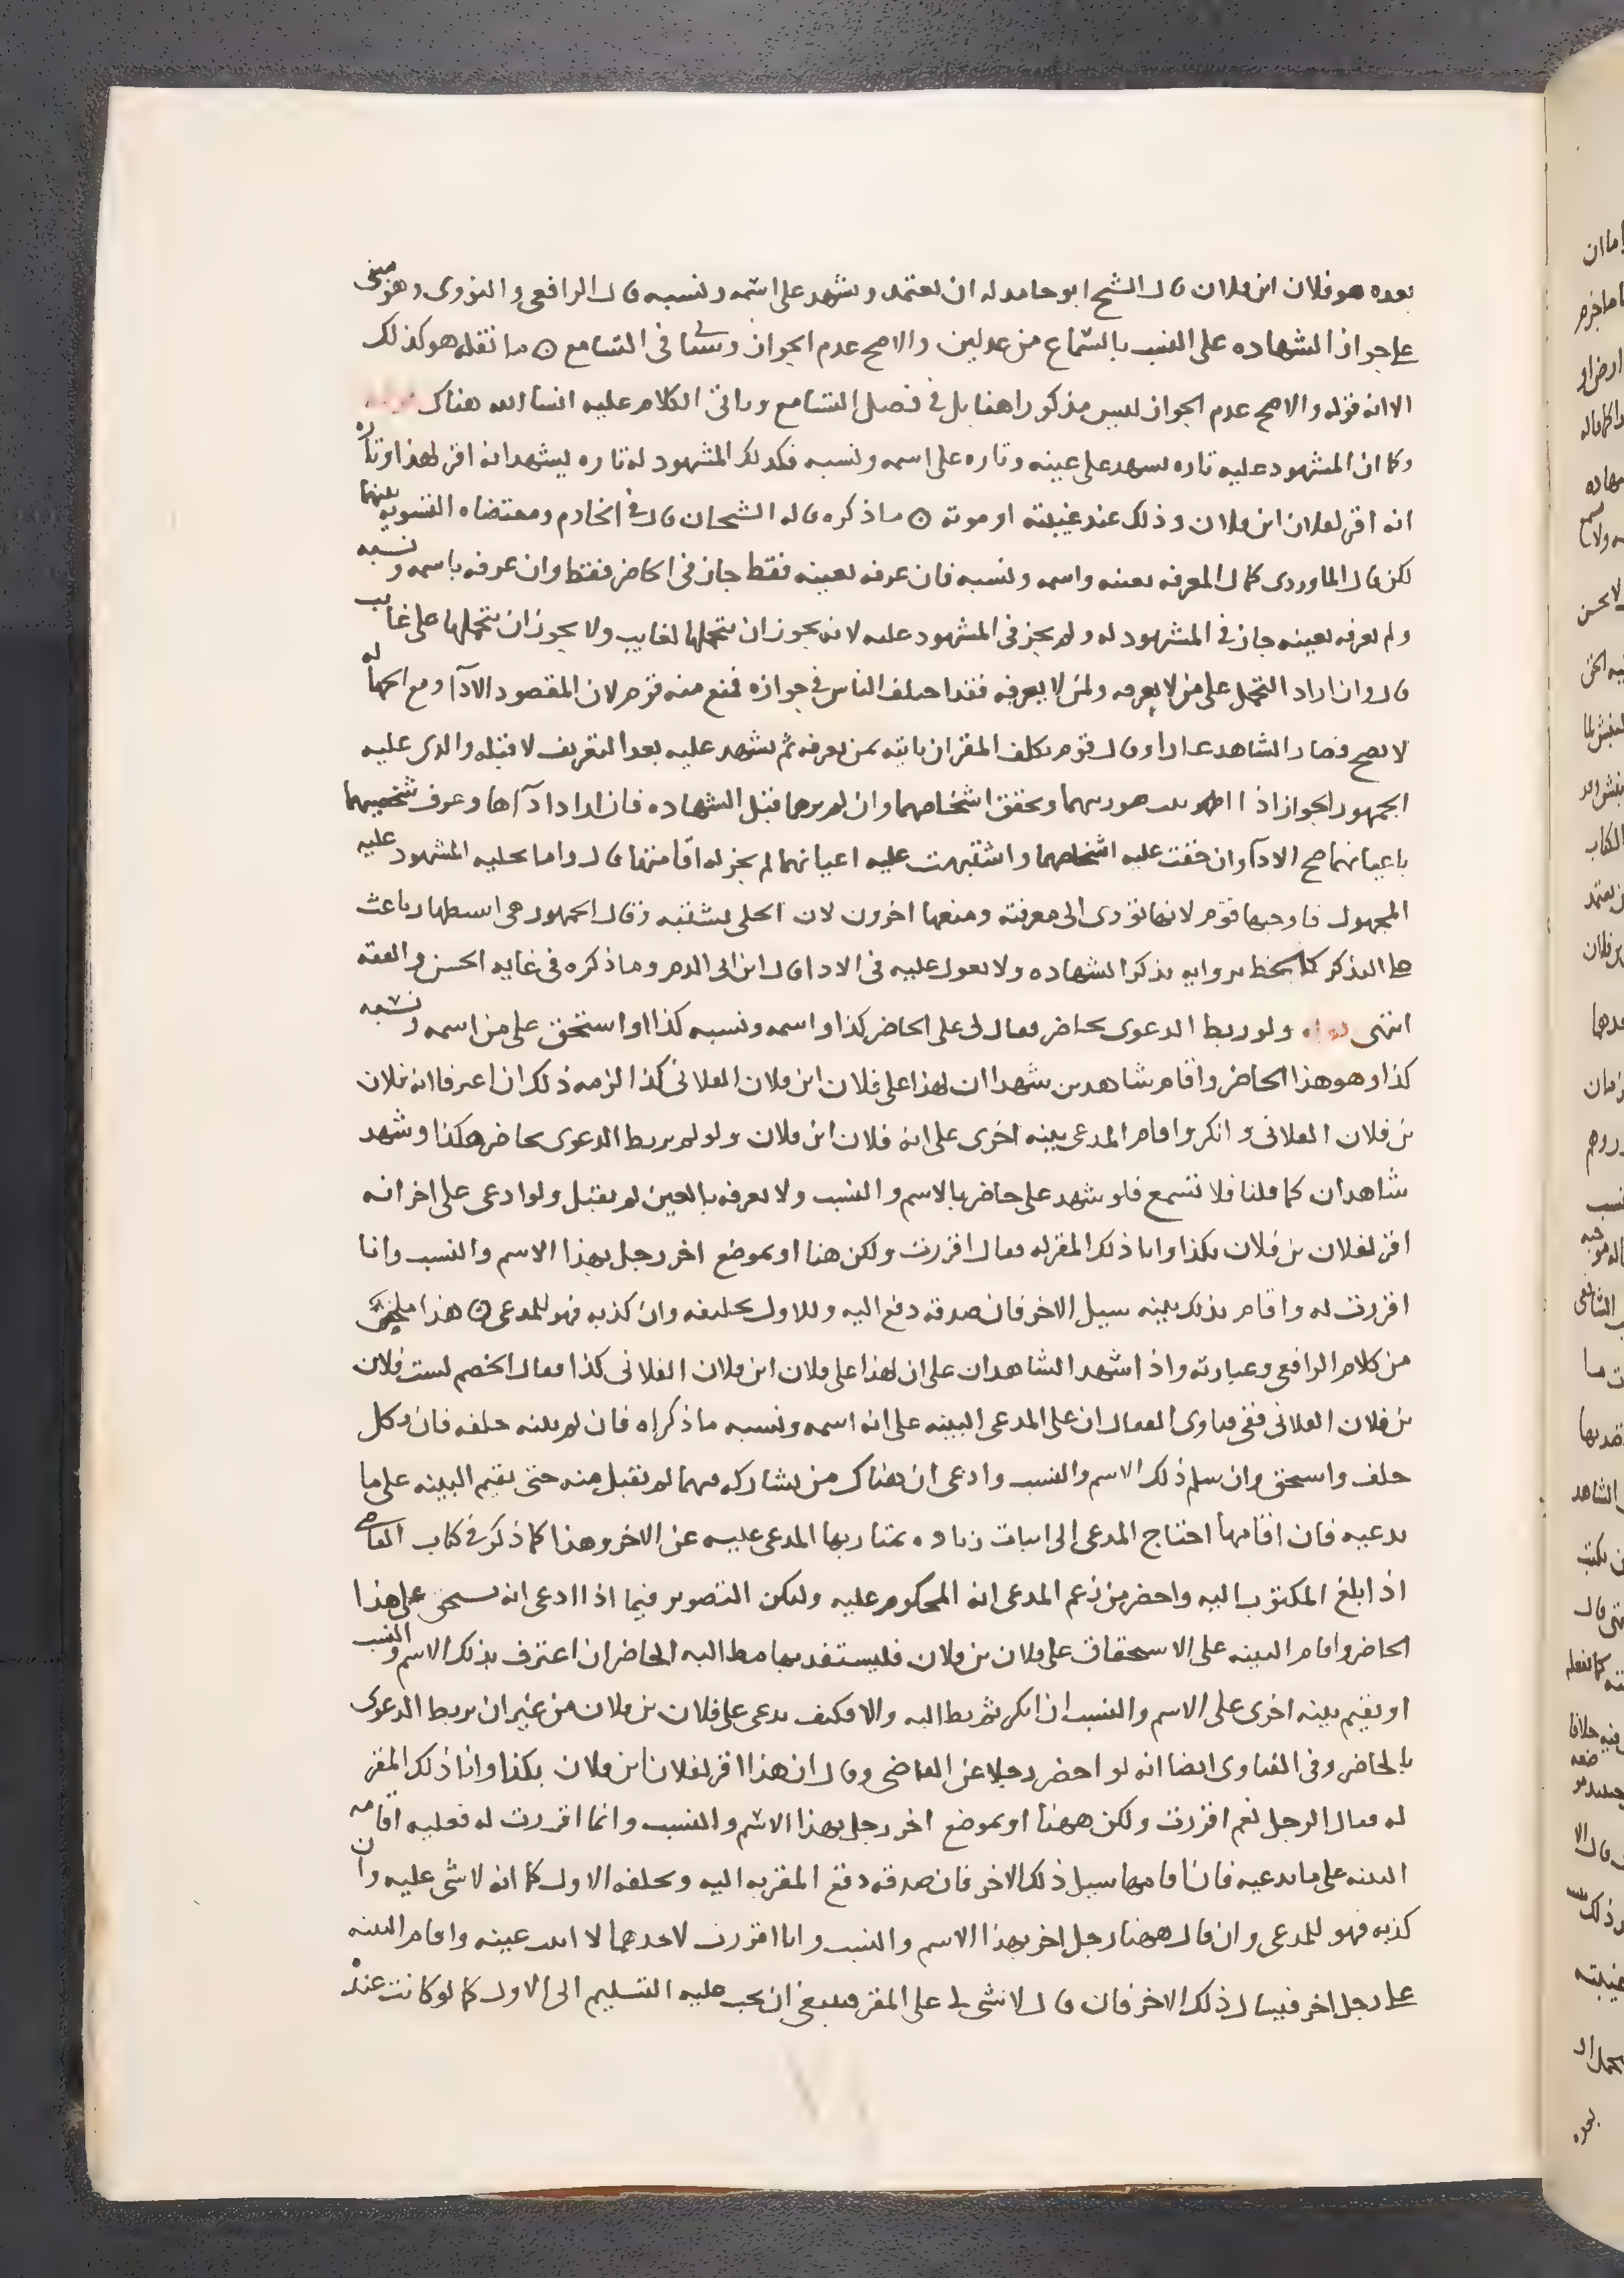 بعده هو فلان ابن فلان قال الشيخ ابو حامد له ان يعتمد ويشهد على اسمه ونسبه قال الرافعي والنووي وهو مبني
على جواز الشهاده على النسب بالسماع من عدلين والاصح عدم الجواز وسياتي في التسامع ۞ ما نقله هو كذلك
الا انه قوله والاصح عدم الجواز ليس مذكورا هنا بل في فصل التسامع وياتي الكلام عليه انشا الله هناك قوله
وكما ان المشهود عليه تاره يشهد على عينه وتاره على اسمه ونسبه فكذلك المشهود له تاره يشهد انه اقر لهذا وتاره
انه اقر لفلان ابن فلان وذلك عند غيبته او موته ۞ ما ذكره قاله الشيخان قال في الخادم ومقتضاه التسويه بينهما
لكن قال الماوردي كمال المعرفه بعينه واسمه ونسبه فان عرفه بعينه فقط جاز في الحاضر فقط وان عرفه باسمه ونسبه
ولم يعرفه بعينه جاز في المشهود له ولم يجز في المشهود عليه لانه يجوز ان يتحملها لغايب ولا يجوز ان يتحملها على غايب
قال وان اراد التحمل على من لا يعرفه ولمن لا يعرفه فقد اختلف الناس في جوازه فمنع منه قوم لان المقصود الادآ ومع الجهاله
لا يصح فصار الشاهد غارا وقال قوم يكلف المقر ان ياتيه بمن يعرفه ثم يشهد عليه بعد التعريف لا قبله والذي عليه
الجمهور الجواز اذا صورتهما وتحقق اشخاصهما وان لم يرهما قبل الشهاده فان اراد ادآها وعرف شخصيهما
باعيانهما صح الادآ وان خفت عليه اشخاصهما واشتبهت عليه اعيانهما لم يجز له اقامتها قال واما تحليه المشهود عليه
المجهول فاوجبها قوم لانها تؤدي الى معرفته ومنعها اخرون لان الحلي يشتبه وقال الجمهور هي استظهار باعث
على التذكر كالخط يراد به تذكر الشهاده ولا يعول عليه في الادا قال ابن ابي الدم وما ذكره في غايه الحسن والفقه
انتهى قوله ولو ربط الدعوى بحاضر فقال لي على الحاضر كذا واسمه ونسبه كذا او استحق على من اسمه ونسبه
كذا وهو هذا الحاضر واقام شاهدين شهدا ان لهذا على فلان ابن فلان الفلاني كذا الزمه ذلك ان اعترفا انه فلان
بن فلان الفلاني وانكر واقام المدعي بينه اخرى على انه فلان ابن فلان ولو لم يربط الدعوى بحاضر هكذا وشهد
شاهدان كما قلنا فلا تسمع فلو شهد على حاضر بالاسم والنسب ولا يعرفه بالعين لم يقبل ولو ادعى على اخر انه
اقر لفلان بن فلان بكذا وانا ذلك المقر له فقال اقررت ولكن هنا او بموضع اخر رجل بهذا الاسم والنسب وانا
اقررت له واقام بذلك بينه سيل الاخر فان صدقه دفع اليه وللاول تحليفه وان كذبه فهو للمدعي ۞ هذا ملخص
من كلام الرافعي وعبارته واذا شهد الشاهدان على ان لهذا على فلان ابن فلان الفلاني كذا فقال الخصم لست فلان
بن فلان الفلاني ففي فتاوى القفال ان على المدعي البينه على انه اسمه ونسبه ما ذكراه فان لم يكنه حلفه فان نكل
حلف واستحق وان سلم ذلك الاسم والنسب وادعى ان هناك من يشاركه فيهما لم تقبل منه حتى يقيم البينه على ما
يدعيه فان اقامها احتاج المدعي الى اثبات زياده يمتاز بها المدعى عليه عن الاخر وهذا كما ذكر في كتاب القاضي
اذا بلغ المكتوب اليه واحضر من زعم المدعي انه المحكوم عليه وليكن التصوير فيما اذا ادعى انه يستحق على هذا
الحاضر واقام البينه على الاستحقاق على فلان بن فلان فليستفد بها مطالبه الحاضر ان اعترف بذلك الاسم والنسب
او يقيم بينه اخرى على الاسم والنسب ان انكر ثم يطالبه والا فكيف يدعي على فلان بن فلان من غير ان يربط الدعوى
بالحاضر وفي الفتاوى ايضا انه لو احضر رجلا عن القاضي وقال ان هذا اقر لفلان ابن فلان بكذا وانا ذلك المقر
له فقال الرجل نعم اقررت ولكن ههنا او بموضع اخر رجل بهذا الاسم والنسب وانما اقررت له فعليه اقامه
البينه على ما يدعيه فان اقامها سيل ذلك الاخر فان صدقه دفع المقر به اليه ويحلفه الاول كما انه لا شي عليه وان
كذبه فهو للمدعي وان قال ههنا رجل اخر بهذا الاسم والنسب وانا اقررت لاحدهما لا عينه واقام البينه
على رجل اخر فيسال ذلك الاخر فان قال لا شي لي على المقر فينبغي ان يجب عليه التسليم الى الاول كما لو كانت عنده